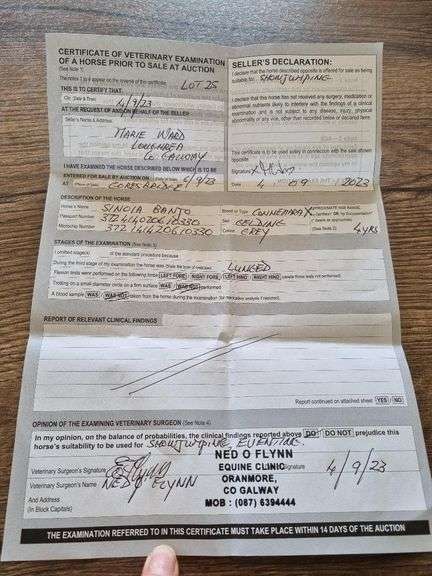 CERTIFICATE OF VETERINARY EXAMINATION
OF A HORSE PRIOR TO SALE AT AUCTION
(See Note 1)
The notes 2 to 4 appear on the reverse of this certificate
LOT 25
THIS IS TO CERTIFY THAT:
On (Date & Time) 4/9/23
AT THE REQUEST AND/ON BEHALF OF THE SELLER
Seller's Name & Address
MARIE WARD
LOUGHREA
Co GALLOWAY
I HAVE EXAMINED THE HORSE DESCRIBED BELOW WHICH IS TO BE
ENTERED FOR SALE BY AUCTION ON 6/9/23
AT (Place of Sale) CORESBRIDGE
SELLER'S DECLARATION:
I declare that the horse described opposite is offered for sale as being
suitable for SHOWJUMPING
I declare that this horse has not received any surgery, medication or
abnormal nutrients likely to interfere with the findings of a clinical
examination and is not subject to any disease, injury, physical
abnormality or any vice, other than recorded below or declared here.
This certificate is to be used solely in connection with the sale stated
opposite.
Signature
Date 4 09 2023
DESCRIPTION OF THE HORSE
Horse's Name SINOLA BANJO
Passport Number 372414206110330
Microchip Number 372414206110330
Breed or Type CONNEMARA X
Sex GELDING
Colour GREY
APPROXIMATE AGE RANGE
(See Note 2) 4YRS
STAGES OF THE EXAMINATION (See Note 3)
I omitted stage(s) of the standard procedure because
During the third stage of the examination the horse was LUNGED
Flexion tests were performed on the following limbs LEFT FORE RIGHT FORE LEFT HIND RIGHT HIND
Trotting on a small diameter circle on a firm surface WAS WAS NOT performed
A blood sample WAS WAS NOT taken from the horse during the examination
REPORT OF RELEVANT CLINICAL FINDINGS
Report continued on attached sheet YES NO
OPINION OF THE EXAMINING VETERINARY SURGEON (See Note 4)
In my opinion, on the balance of probabilities, the clinical findings reported above DO: DO NOT prejudice this
horse's suitability to be used for SHOWJUMPING EVENTING
Veterinary Surgeon's Signature
Veterinary Surgeon's Name NED O FLYNN
And Address
(In Block Capitals)
NED O FLYNN
EQUINE CLINIC
ORANMORE,
CO GALWAY
MOB : (087) 6394444
Signature 4/9/23
THE EXAMINATION REFERRED TO IN THIS CERTIFICATE MUST TAKE PLACE WITHIN 14 DAYS OF THE AUCTION